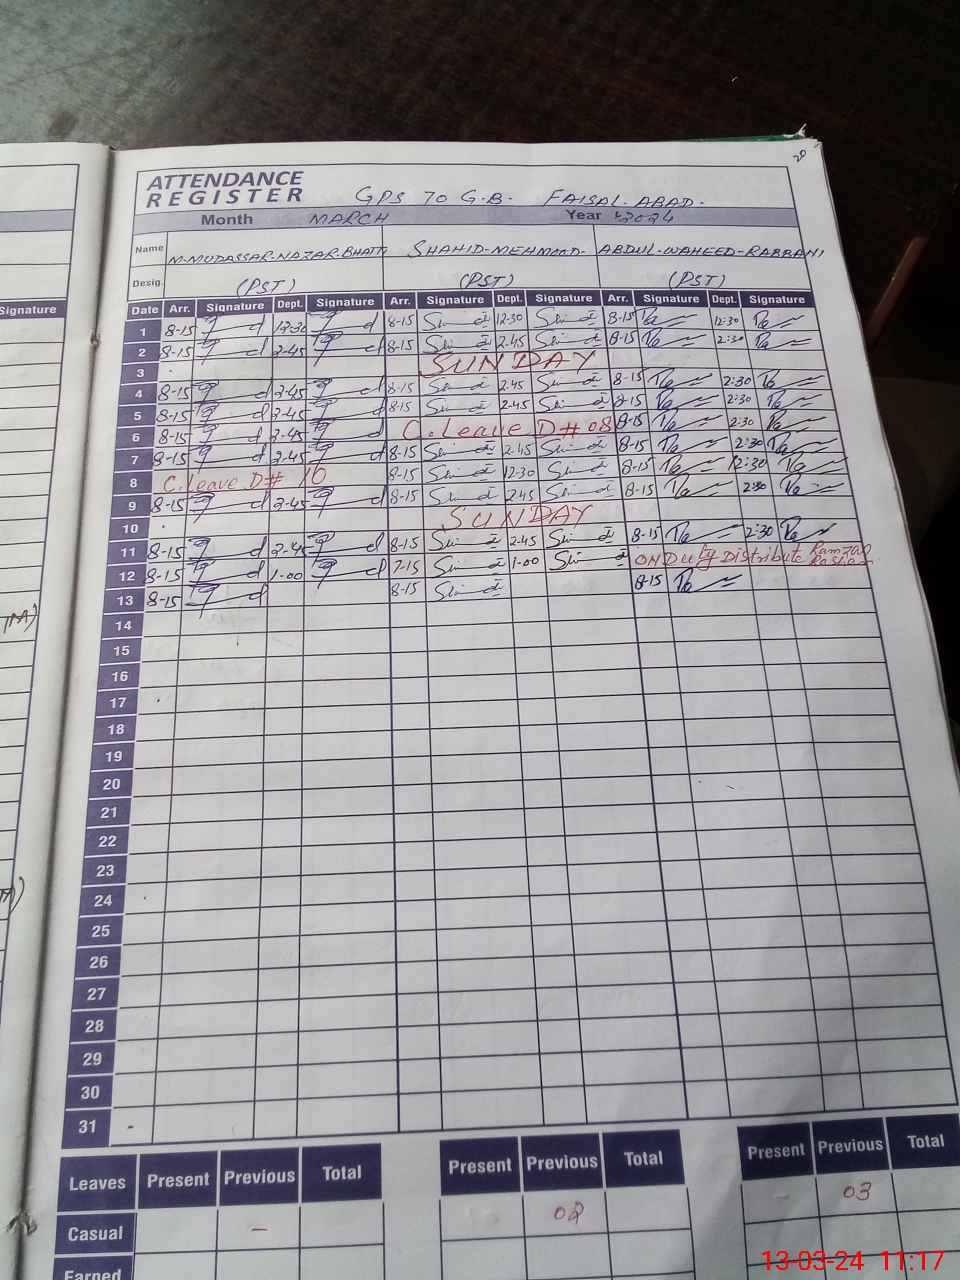 20
ATTENDANCE
REGISTER GPS 70 G.B. FAISALABAD.
Month MARCH Year 2024
Name M-MUDASSAR-NAZAR-BHATTI SHAHID-MEHMOOD- ABDUL-WAHEED-RABBANI
Desig. (PST) (PST) (PST)
Signature Date Arr. Signature Dept. Signature Arr. Signature Dept. Signature Arr. Signature Dept. Signature
1 8-15 12-30 8-15 12-30 8-15 12:30
2 8-15 2-45 8-15 2.45 8-15 2:30
3 SUNDAY
4 8-15 2-45 8-15 2.45 8-15 2:30
5 8-15 2-45 8-15 2.45 8-15 2:30
6 8-15 2-45 C. Leave D# 08 8-15 2:30
7 8-15 2-45 8-15 2.45 8-15 2:30
8 C. Leave D# 10 8-15 12-30 8-15 12:30
9 8-15 2-45 8-15 2.45 8-15 2:30
10 SUNDAY
11 8-15 2-45 8-15 2.45 8-15 2:30
12 8-15 1-00 7-15 1-00 ON Duty Distribute Ramzan
13 8-15 8-15 8-15
14
15
16
17
18
19
20
21
22
23
24
25
26
27
28
29
30
31
Leaves Present Previous Total Present Previous Total Present Previous Total
Casual - 02 03
Earned
13-03-24 11:17